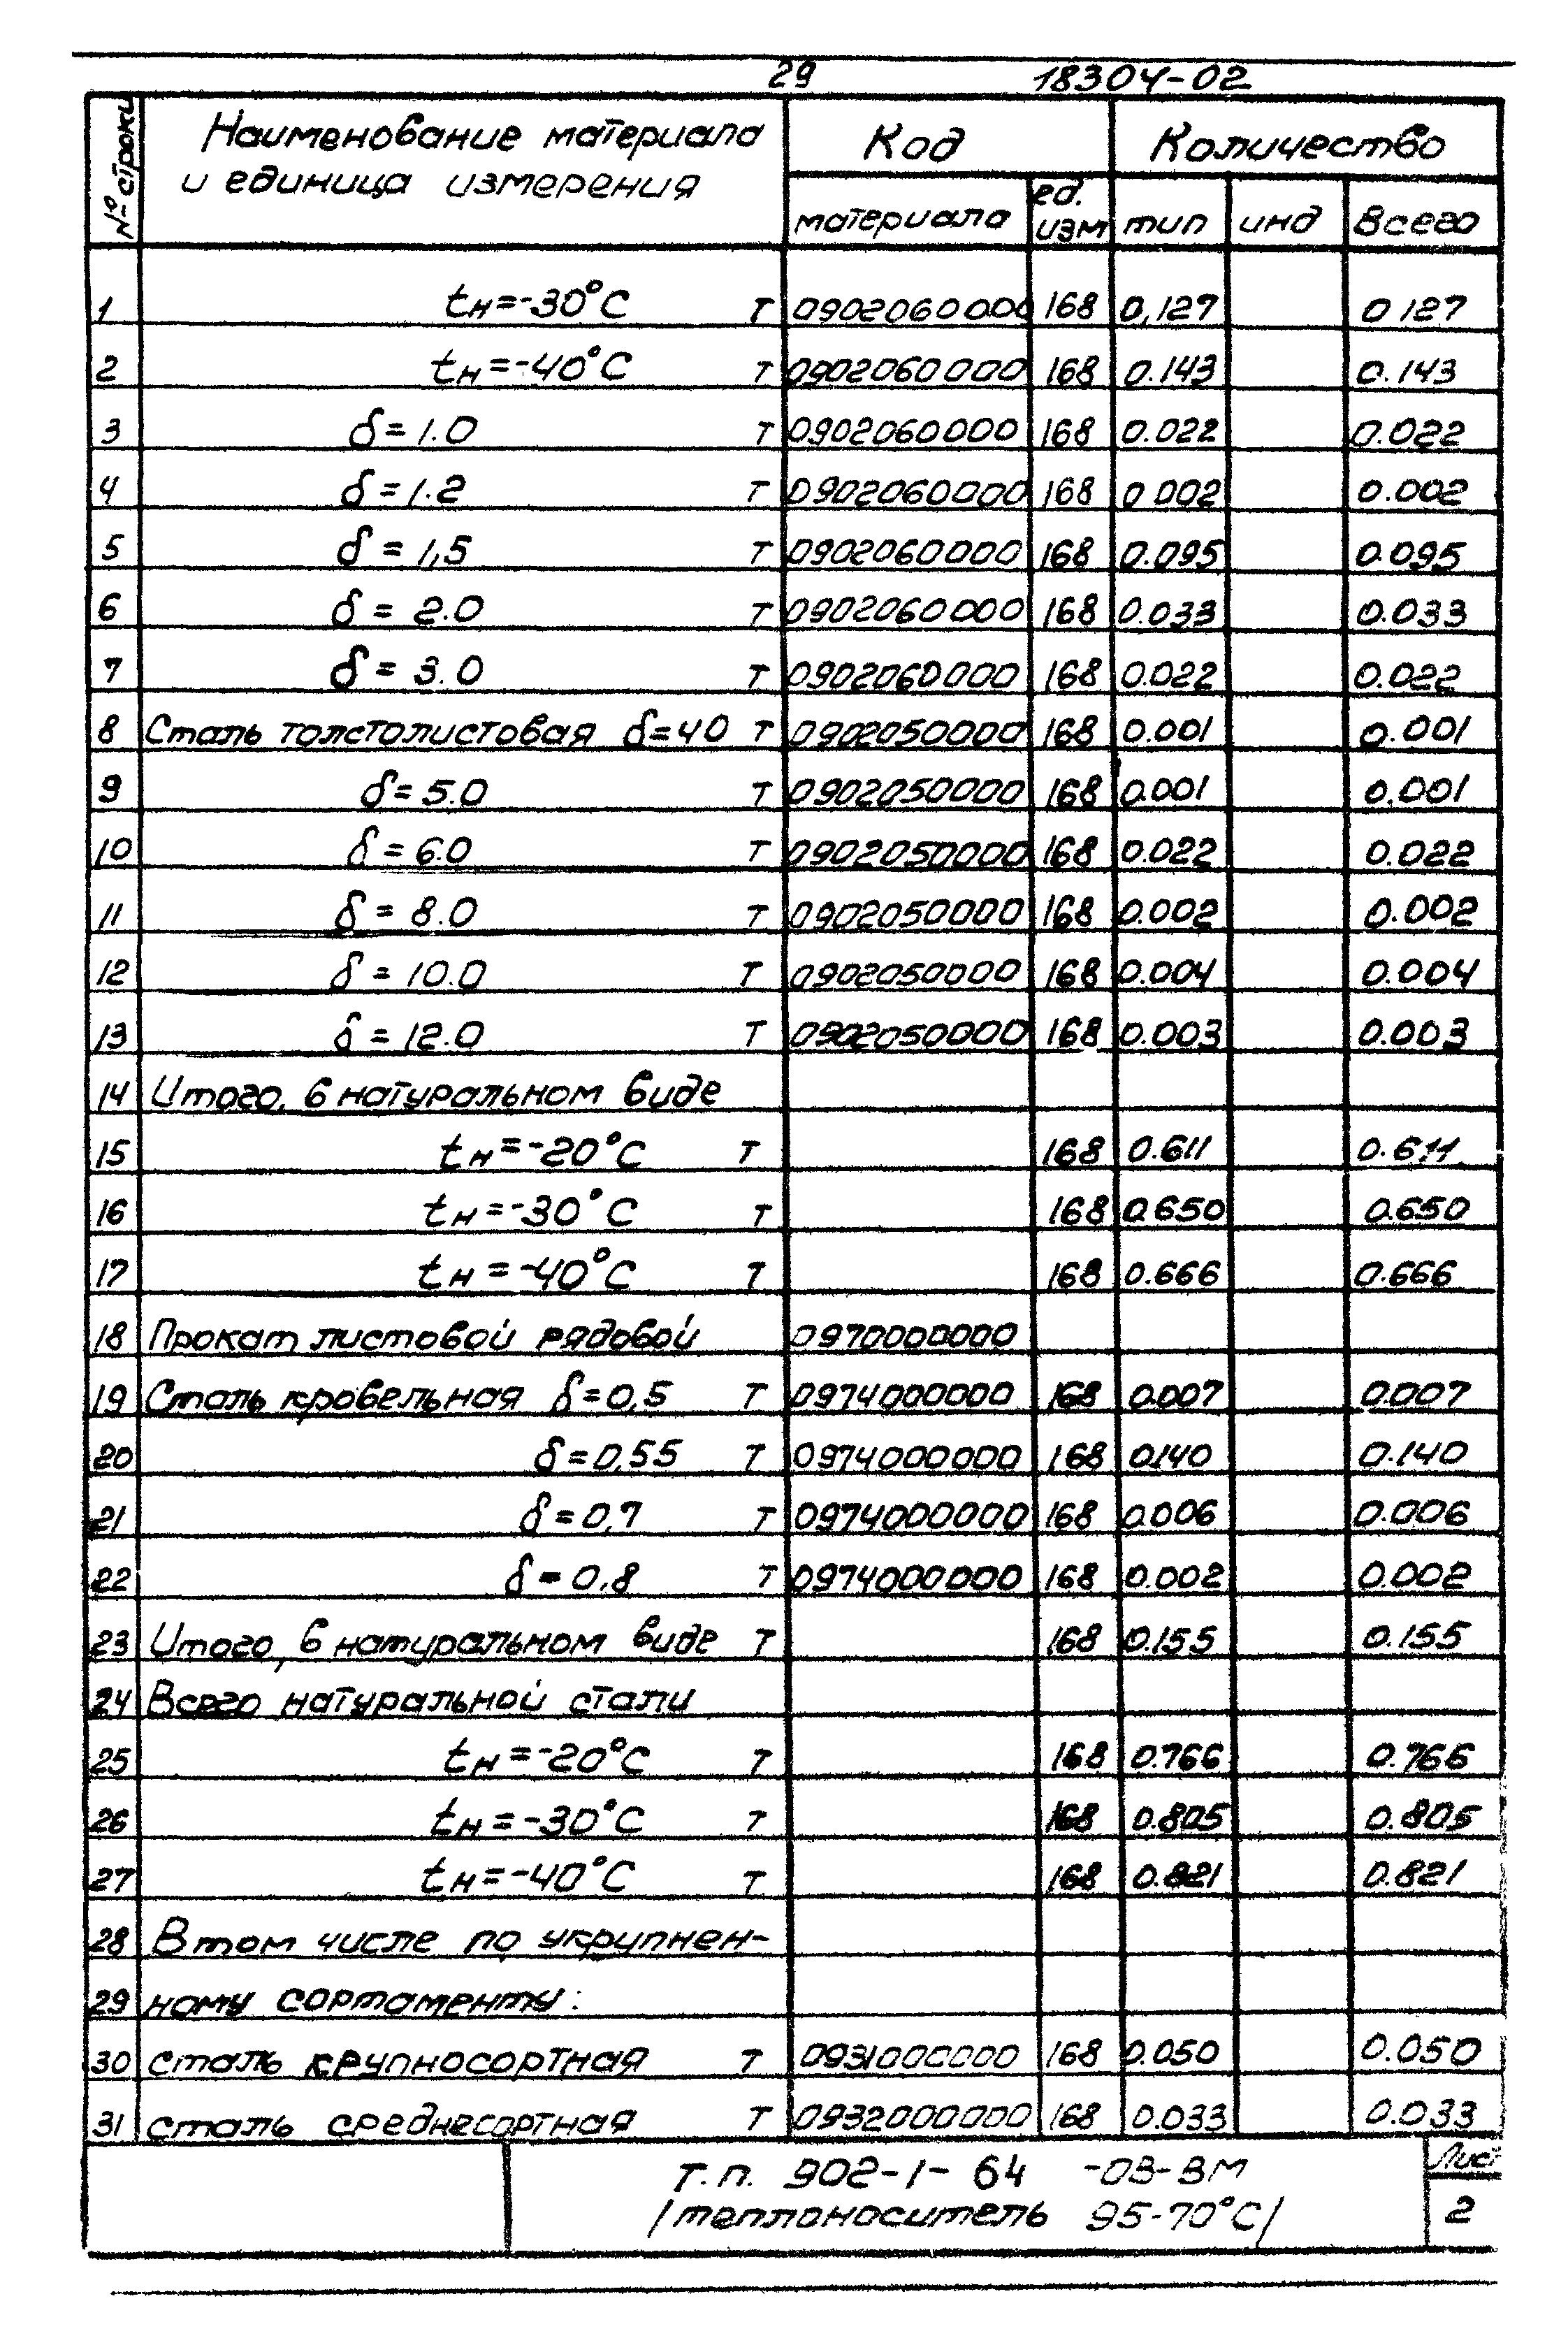 29 18304-02
№ строки Наименование материала и единица измерения Код Количество
материала ед. изм тип инд Всего
1 tн=-30°C т 0902060000 168 0,127 0 127
2 tн=-40°C т 0902060000 168 0.143 0.143
3 δ=1.0 т 0902060000 168 0.022 0.022
4 δ=1.2 т 0902060000 168 0 002 0.002
5 δ=1,5 т 0902060000 168 0.095 0.095
6 δ=2.0 т 0902060000 168 0.033 0.033
7 δ=3.0 т 0902060000 168 0.022 0.022
8 Сталь толстолистовая δ=40 т 0902050000 168 0.001 0.001
9 δ=5.0 т 0902050000 168 0.001 0.001
10 δ=6.0 т 0902050000 168 0.022 0.022
11 δ=8.0 т 0902050000 168 0.002 0.002
12 δ=10.0 т 0902050000 168 0.004 0.004
13 δ=12.0 т 0902050000 168 0.003 0.003
14 Итого, в натуральном виде
15 tн=-20°C т 168 0.611 0.611
16 tн=-30°C т 168 0.650 0.650
17 tн=-40°C т 168 0.666 0.666
18 Прокат листовой рядовой 0970000000
19 Сталь кровельная δ=0,5 т 0974000000 168 0.007 0.007
20 δ=0,55 т 0974000000 168 0.140 0.140
21 δ=0,7 т 0974000000 168 0.006 0.006
22 δ=0,8 т 0974000000 168 0.002 0.002
23 Итого, в натуральном виде т 168 0.155 0.155
24 Всего натуральной стали
25 tн=-20°C т 168 0.766 0.766
26 tн=-30°C т 168 0.805 0.805
27 tн=-40°C т 168 0.821 0.821
28 В том числе по укрупнен-
29 ному сортаменту:
30 сталь крупносортная т 0931000000 168 0.050 0.050
31 сталь среднесортная т 0932000000 168 0.033 0.033
т.п. 902-1-64 -ОВ-ВМ Лист
/теплоноситель 95-70°C/ 2